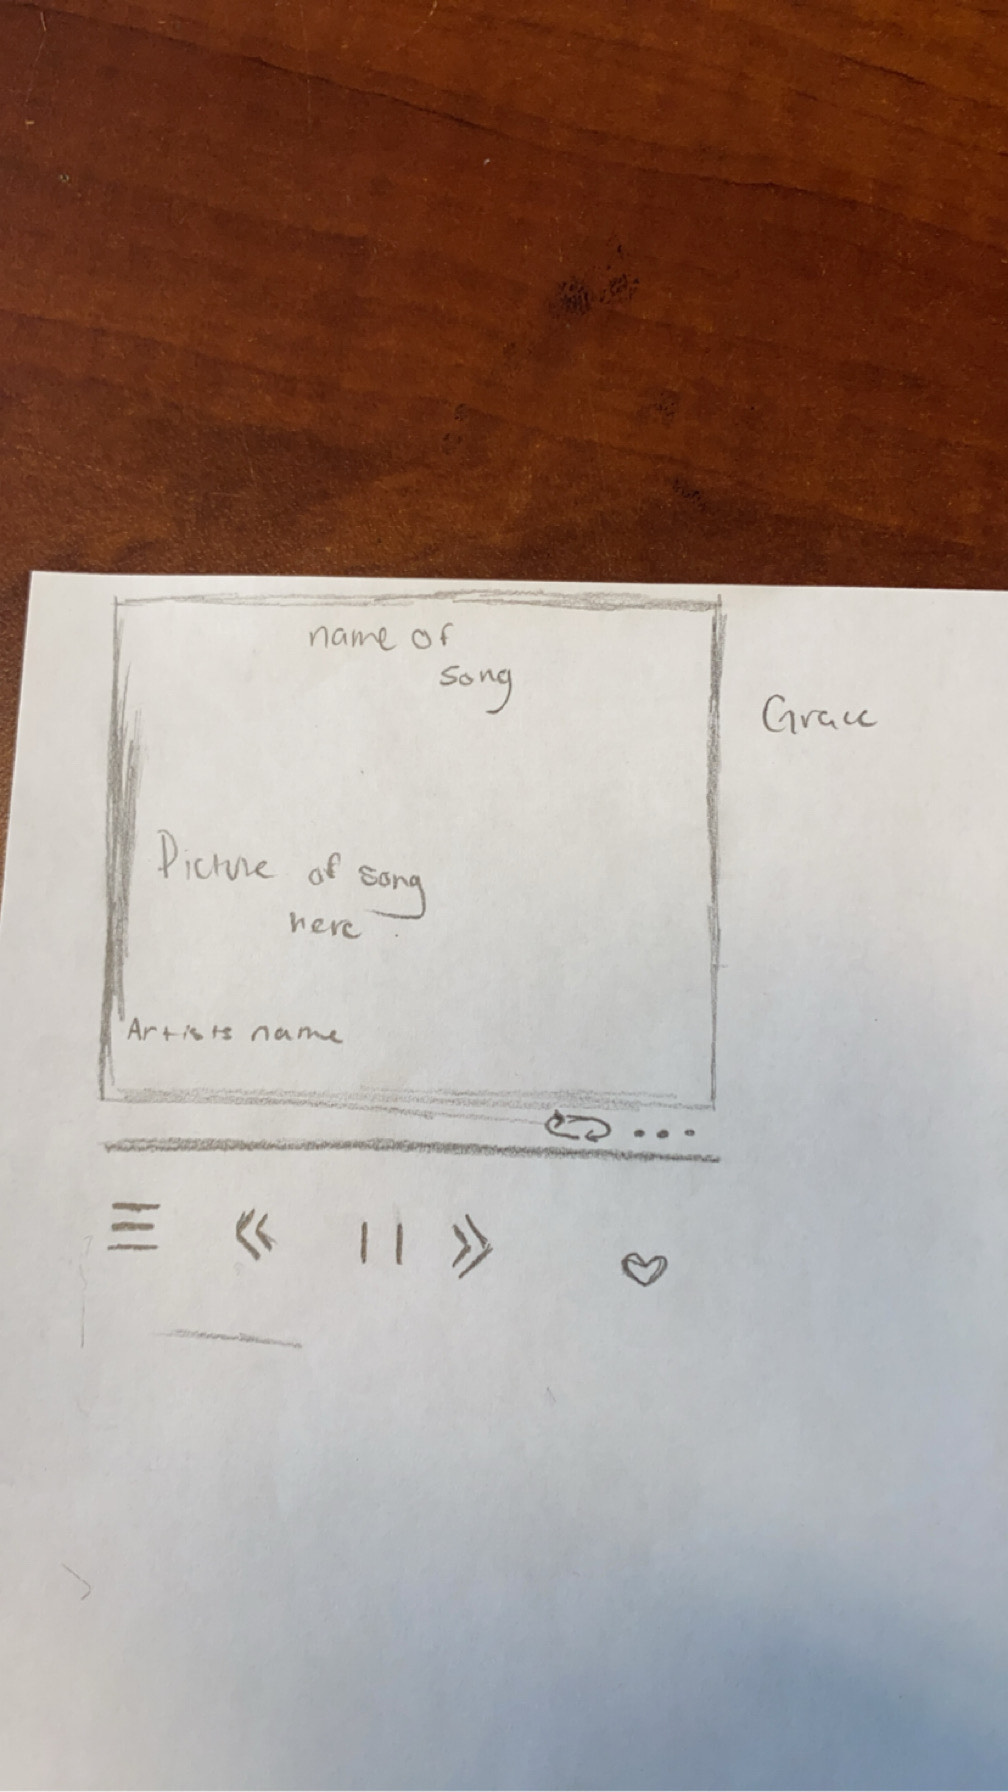 name of
song
Grace
Picture of song
here
Artists name